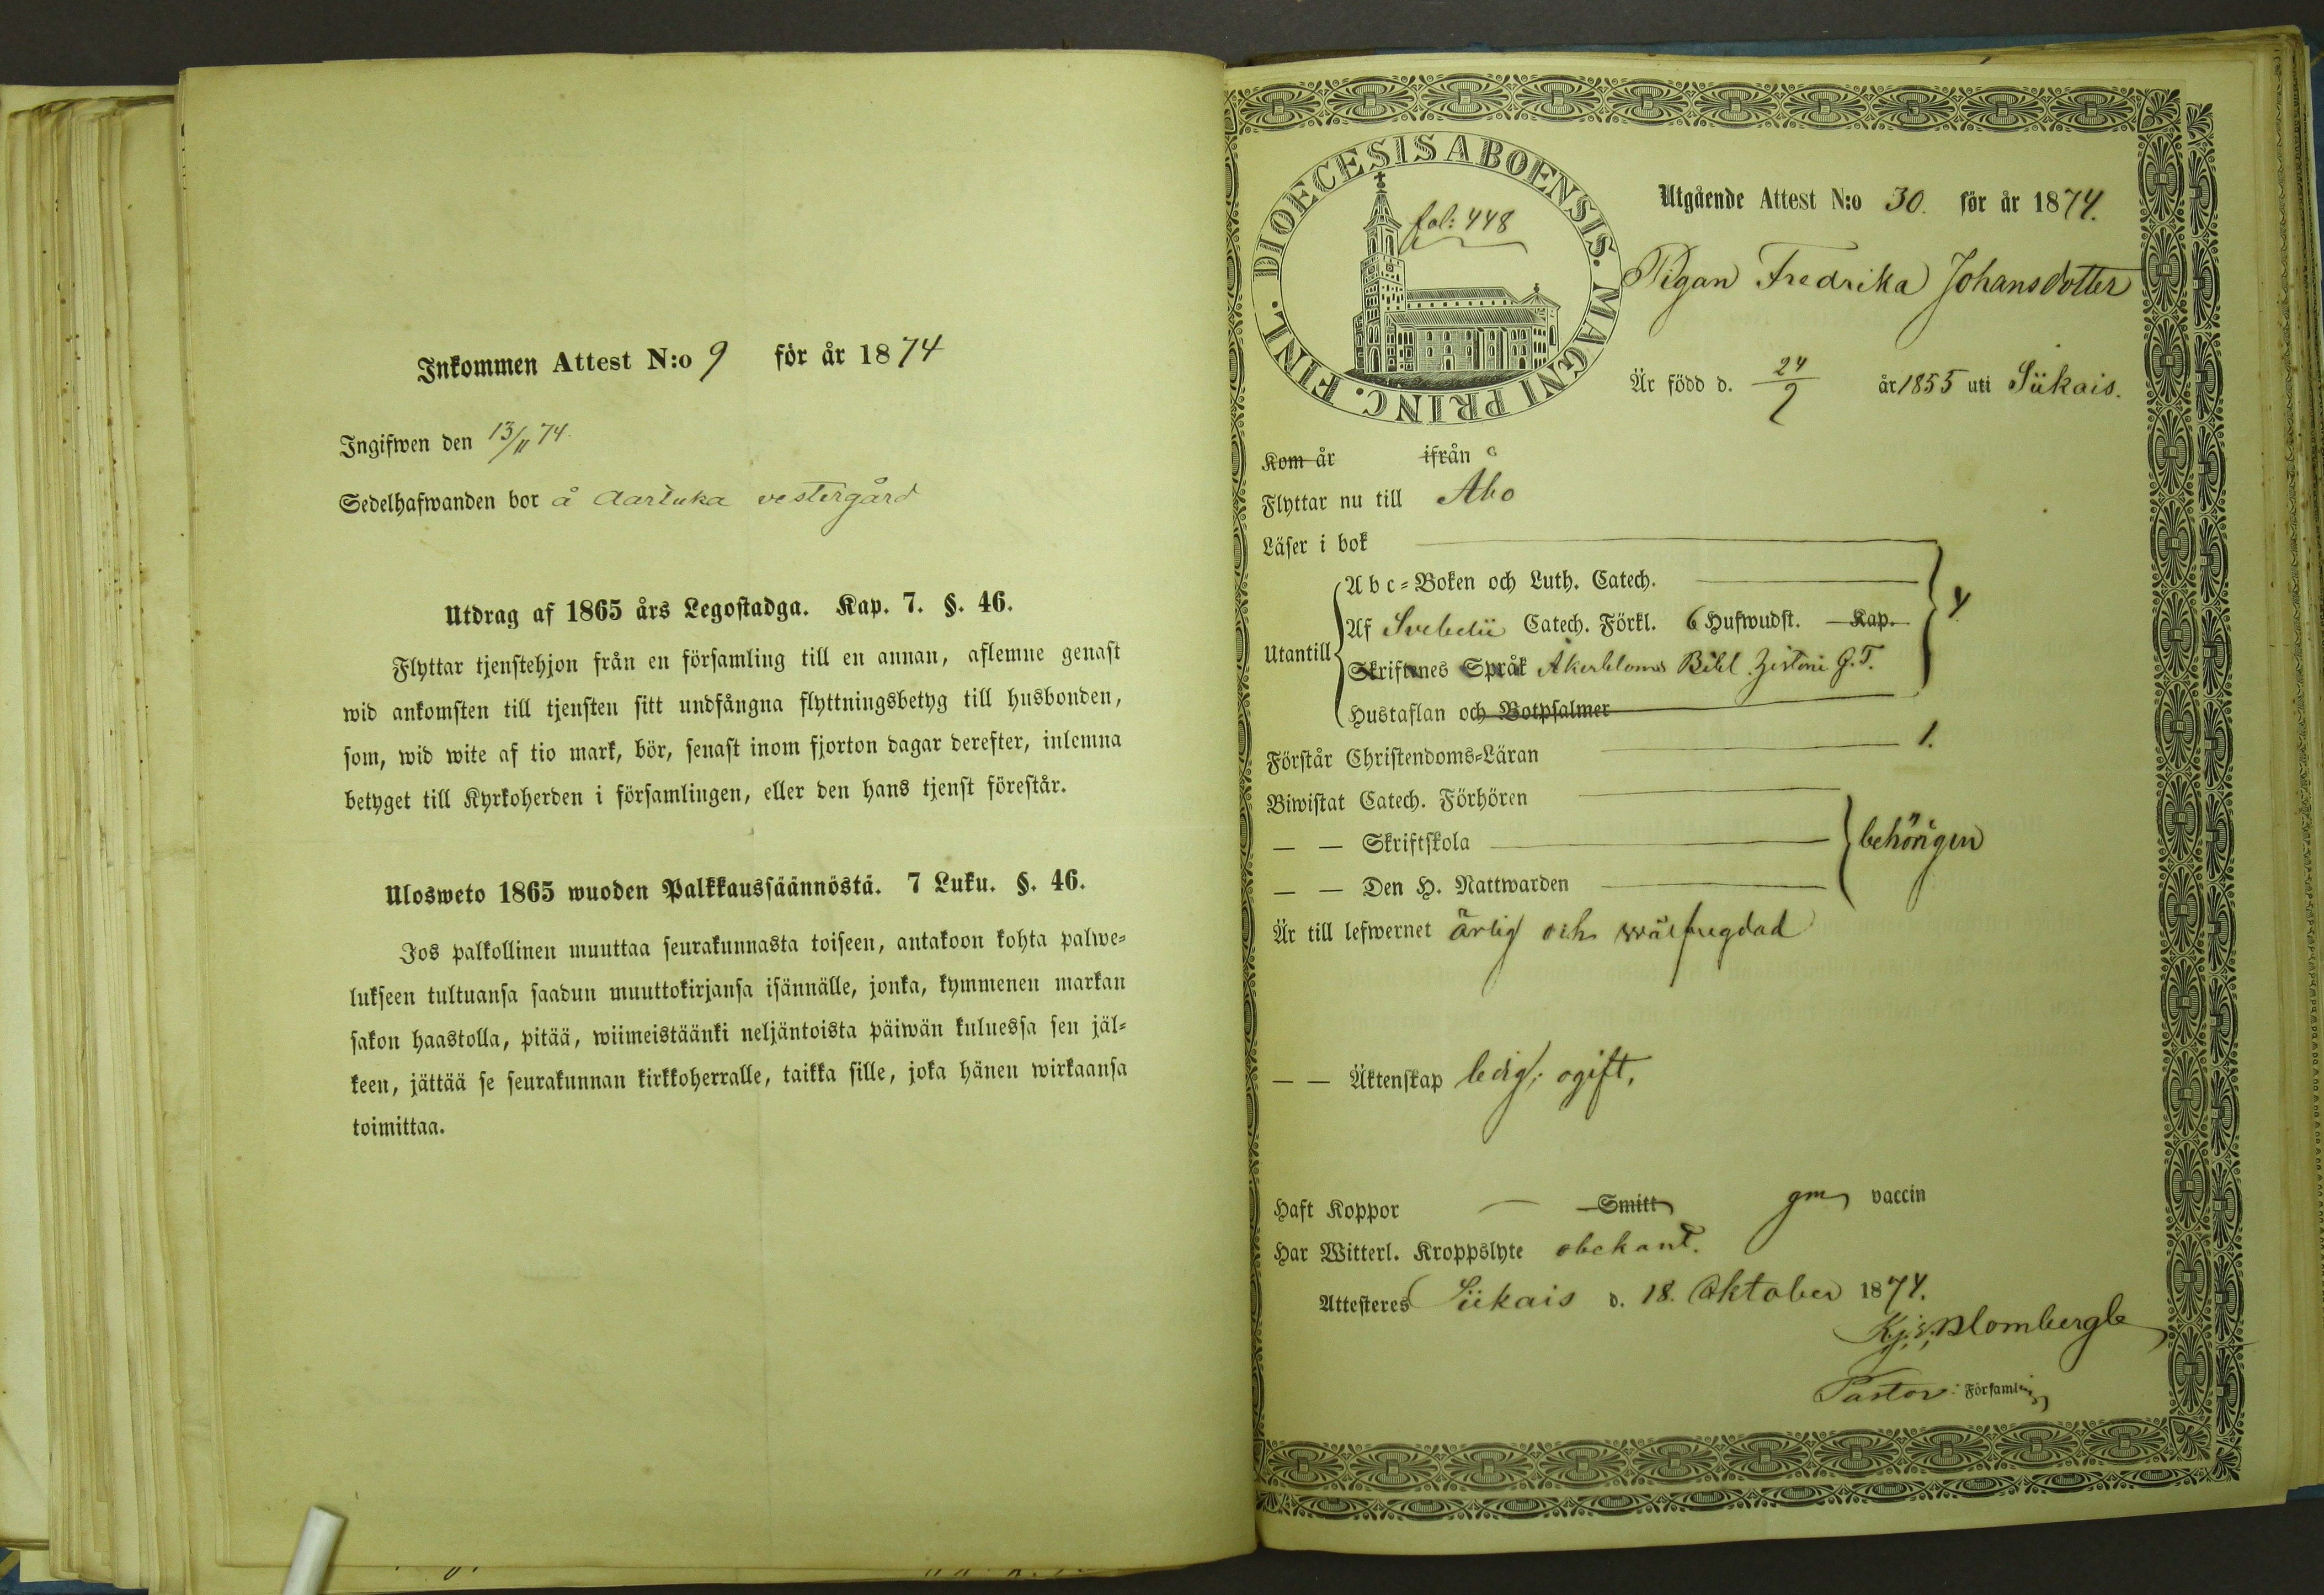 Inkommen Attest N:o 9 för år 1874
Ingifwen den 13/11 74.
Sedelhafwanden bor å Aarluka vestergård
Utdrag af 1865 års Legostadga. Kap. 7. §. 46.
Flyttar tjenstehjon från en församling till en annan, aflemne genast
wid ankomsten till tjensten sitt undfångna flyttningsbetyg till husbonden,
som, wid wite af tio mark, bör, senast inom fjorton dagar derefter, inlemna
betyget till Kyrkoherden i församlingen, eller den hans tjenst förestår.
Ulosweto 1865 wuoden Palkkaussäännöstä. 7 Luku. §. 46.
Jos palkollinen muuttaa seurakunnasta toiseen, antakoon kohta palwe-
lukseen tultuansa saadun muuttokirjansa isännälle, jonka, kymmenen markan
sakon haastolla, pitää, wiimeistäänki neljäntoista päiwän kuluessa sen jäl-
keen, jättää se seurakunnan kirkkoherralle, taikka sille, joka hänen wirkaansa
toimittaa.
DIOECESIS ABOENSIS. MAGNI PRINC. FINL.
fol: 448
Utgående Attest N:o 30. för år 1874.
Pigan Fredrika Johansdotter
Är född d. 24/2 år 1855 uti Siikais.
Kom år ifrån
Flyttar nu till Åbo
Läser i bok
Utantill
Abc-Boken och Luth. Catech.
Af Svebelii Catech. Förkl. 6 Hufwudst. Kap.
Skriftenes Språk Akerbloms Bibl. G. T.
Hustaflan och Botpsalmer
Förstår Christendoms-Läran 1.
Biwistat Catech. Förhören
— — Skriftskola behörigen
— — Den H. Nattwarden
Är till lefwernet ärlig och wälfregdad
— — Äktenskap ledig; ogift.
Haft Koppor — Smitt gm vaccin
Har Witterl. Kroppslyte obekant.
Attesteres Siikais d. 18. Oktober 1874.
Blombergh
Pastor. Församling